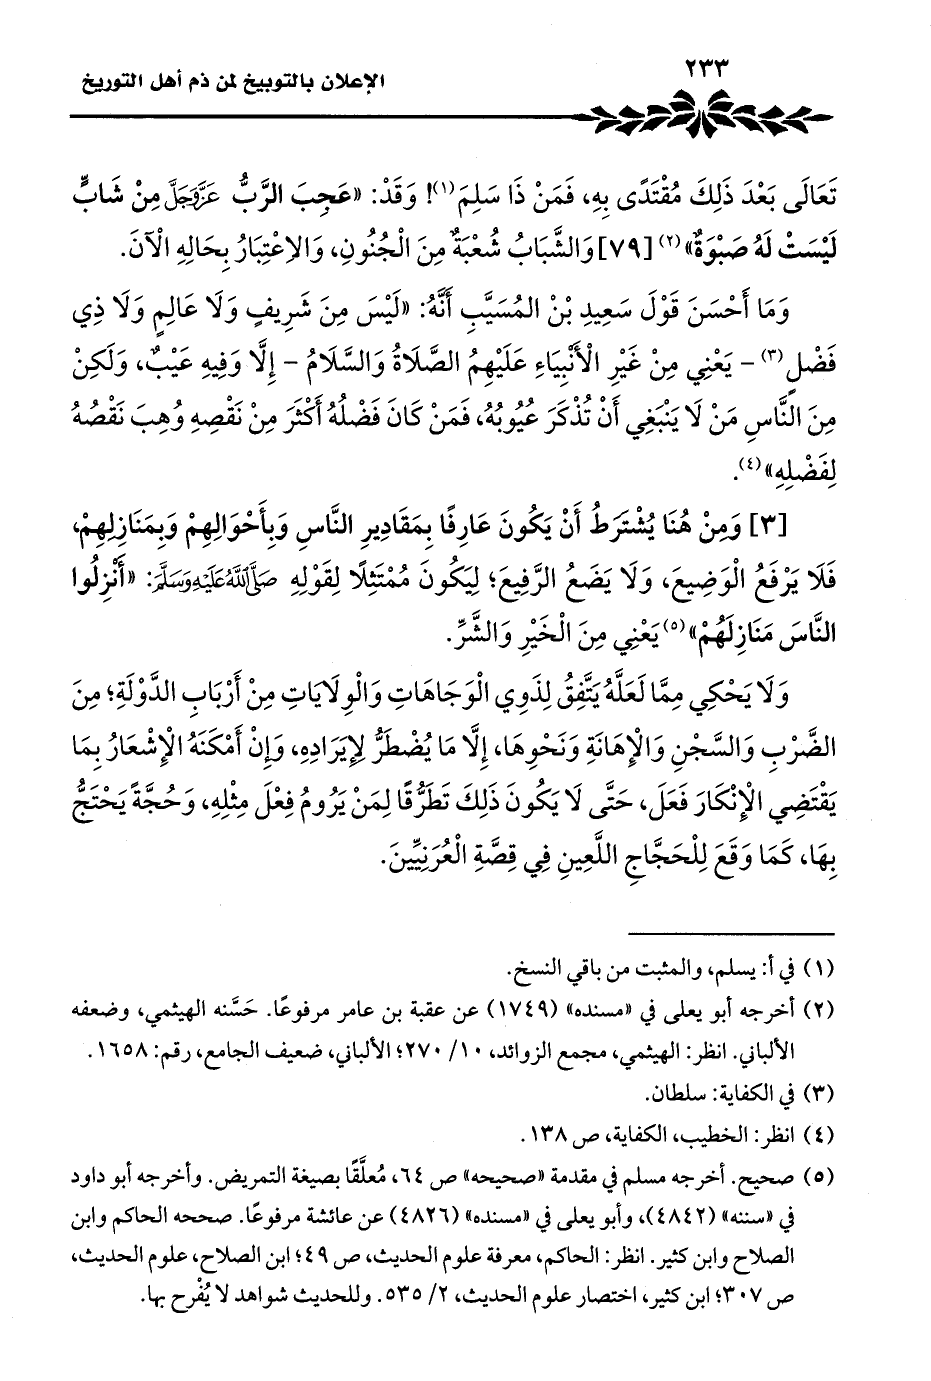 ٢٣٣
الإعلان بالتوبيخ لمن ذم أهل التوريخ
تَعَالَى بَعْدَ ذَلِكَ مُقْتَدًى بِهِ، فَمَنْ ذَا سَلِمَ(١)! وَقَدْ: «عَجِبَ الرَّبُّ عَزَّوَجَلَّ مِنْ شَابٍّ
لَيْسَتْ لَهُ صَبْوَةٌ»(٢) [٧٩] وَالشَّبَابُ شُعْبَةٌ مِنَ الْجُنُونِ، وَالِاعْتِبَارُ بِحَالِهِ الْآنَ.
وَمَا أَحْسَنَ قَوْلَ سَعِيدِ بْنِ الْمُسَيَّبِ أَنَّهُ: «لَيْسَ مِنَ شَرِيفٍ وَلَا عَالِمٍ وَلَا ذِي
فَضْلٍ(٣) - يَعْنِي مِنْ غَيْرِ الْأَنْبِيَاءِ عَلَيْهِمُ الصَّلَاةُ وَالسَّلَامُ - إِلَّا وَفِيهِ عَيْبٌ، وَلَكِنْ
مِنَ النَّاسِ مَنْ لَا يَنْبَغِي أَنْ تُذْكَرَ عُيُوبُهُ، فَمَنْ كَانَ فَضْلُهُ أَكْثَرَ مِنْ نَقْصِهِ وُهِبَ نَقْصُهُ
لِفَضْلِهِ»(٤).
[٣] وَمِنْ هُنَا يُشْتَرَطُ أَنْ يَكُونَ عَارِفًا بِمَقَادِيرِ النَّاسِ وَبِأَحْوَالِهِمْ وَبِمَنَازِلِهِمْ،
فَلَا يَرْفَعُ الْوَضِيعَ، وَلَا يَضَعُ الرَّفِيعَ؛ لِيَكُونَ مُمْتَثِلًا لِقَوْلِهِ صَلَّى اللَّهُ عَلَيْهِ وَسَلَّمَ: «أَنْزِلُوا
النَّاسَ مَنَازِلَهُمْ»(٥) يَعْنِي مِنَ الْخَيْرِ وَالشَّرِّ.
وَلَا يَحْكِي مِمَّا لَعَلَّهُ يَتَّفِقُ لِذَوِي الْوَجَاهَاتِ وَالْوِلَايَاتِ مِنْ أَرْبَابِ الدَّوْلَةِ؛ مِنَ
الضَّرْبِ وَالسَّجْنِ وَالْإِهَانَةِ وَنَحْوِهَا، إِلَّا مَا يُضْطَرُّ لِإِيرَادِهِ، وَإِنْ أَمْكَنَهُ الْإِشْعَارُ بِمَا
يَقْتَضِي الْإِنْكَارَ فَعَلَ، حَتَّى لَا يَكُونَ ذَلِكَ تَطَرُّقًا لِمَنْ يَرُومُ فِعْلَ مِثْلِهِ، وَحُجَّةً يَحْتَجُّ
بِهَا، كَمَا وَقَعَ لِلْحَجَّاجِ اللَّعِينِ فِي قِصَّةِ الْعُرَنِيِّينَ.
(١) في أ: يسلم، والمثبت من باقي النسخ.
(٢) أخرجه أبو يعلى في «مسنده» (١٧٤٩) عن عقبة بن عامر مرفوعًا. حَسَّنه الهيثمي، وضعفه
الألباني. انظر: الهيثمي، مجمع الزوائد، ١٠/ ٢٧٠؛ الألباني، ضعيف الجامع، رقم: ١٦٥٨.
(٣) في الكفاية: سلطان.
(٤) انظر: الخطيب، الكفاية، ص ١٣٨.
(٥) صحيح. أخرجه مسلم في مقدمة «صحيحه» ص ٦٤، مُعلَّقًا بصيغة التمريض. وأخرجه أبو داود
في «سننه» (٤٨٤٢)، وأبو يعلى في «مسنده» (٤٨٢٦) عن عائشة مرفوعًا. صححه الحاكم وابن
الصلاح وابن كثير. انظر: الحاكم، معرفة علوم الحديث، ص ٤٩؛ ابن الصلاح، علوم الحديث،
ص ٣٠٧؛ ابن كثير، اختصار علوم الحديث، ٢/ ٥٣٥. وللحديث شواهد لا يُفْرح بها.